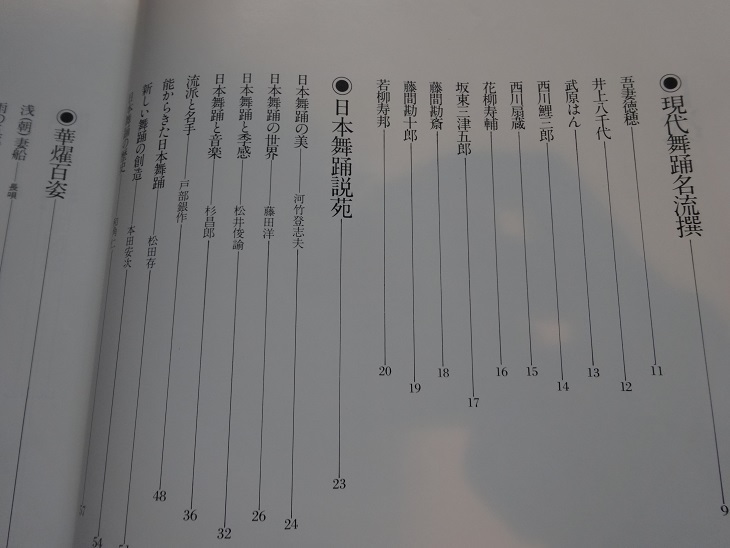 ◉現代舞踊名流撰 9
吾妻徳穂 11
井上八千代 12
武原はん 13
西川鯉三郎 14
西川扇蔵 15
花柳寿輔 16
坂東三津五郎 17
藤間勘斎 18
藤間勘十郎 19
若柳寿邦 20
◉日本舞踊説苑 23
日本舞踊の美 河竹登志夫 24
日本舞踊の世界 藤田洋 26
日本舞踊と季感 松井俊諭 32
日本舞踊と音楽 杉昌郎 36
流派と名手 戸部銀作 48
能からきた日本舞踊 松田存
新しい舞踊の創造 本田安次 54
◉華燿百姿
浅(朝)妻船 長唄
雨の